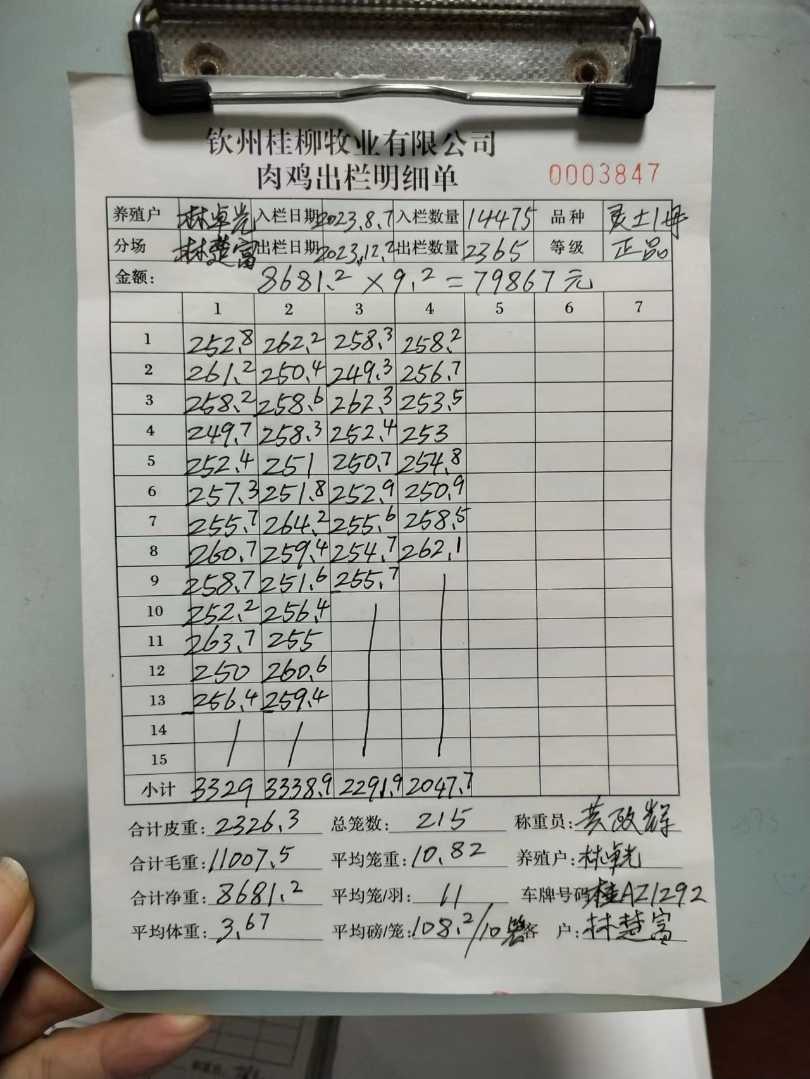 钦州桂柳牧业有限公司
肉鸡出栏明细单 0003847
养殖户 林卓光 入栏日期 2023.8.7 入栏数量 14475 品种 灵土1母
分场 林楚富 出栏日期 2023.12.2 出栏数量 2365 等级 正品
金额: 8681.2×9.2=79867元
1 2 3 4 5 6 7
1 252.8 262.2 258.3 258.2
2 261.2 250.4 249.3 256.7
3 258.2 258.6 262.3 253.5
4 249.7 258.3 252.4 253
5 252.4 251 250.7 254.8
6 257.3 251.8 252.9 250.9
7 255.7 264.2 255.6 258.5
8 260.7 259.4 254.7 262.1
9 258.7 251.6 255.7
10 252.2 256.4
11 263.7 255
12 250 260.6
13 256.4 259.4
14
15
小计 3329 3338.9 2291.9 2047.7
合计皮重: 2326.3 总笼数: 215 称重员: 黄政辉
合计毛重: 11007.5 平均笼重: 10.82 养殖户: 林卓光
合计净重: 8681.2 平均笼/羽: 11 车牌号码 桂AZ1292
平均体重: 3.67 平均磅/笼: 108.2/10 客 户: 林楚富